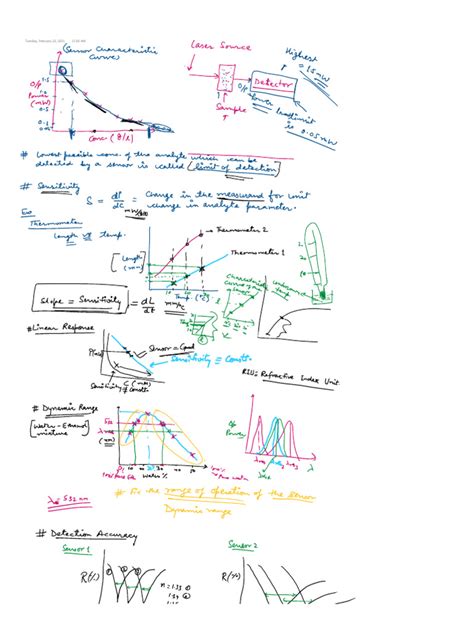 Tuesday, February 23, 2021 11:30 AM
(Sensor Characteristic Curve)
Laser Source
Highest = 1.5 mW
O/p Power (mW)
1.5
1.0
0.5
0.1
0.05
Detector
O/p
Sample
lower limit is 0.05 mW
Conc (g/l)
# Lowest possible conc. of the analyte which can be
detected by a sensor is called (limit of detection)
# Sensitivity
S = dP/dC = Change in the measurand for unit
change in analyte parameter.
mW/g/l
Exo
Thermometer
Length vs temp.
Thermometer 2
Thermometer 1
Length (mm)
Temp. (°C)
Characteristic Curve of a
Slope = Sensitivity = dL/dt mm/°C
# Linear Response
P(mW)
Sensor = Good
Sensitivity ≡ Constt.
C (mM)
Sensitivity ≠ Constt.
RIU = Refractive Index Unit
# Dynamic Range
(Water - Ethanol) mixture
λres (nm)
Water %
O/p Power
λ
λ = 532 nm
# It is the range of operation of the sensor
Dynamic range
# Detection Accuracy
Sensor 1
Sensor 2
R(%)
n = 1.33
1.34
R(%)